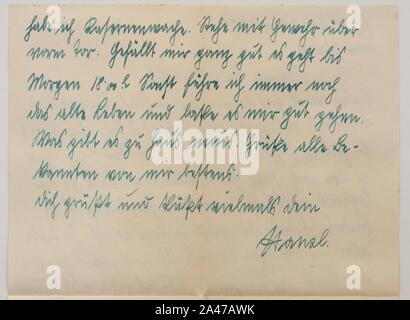 habe ich Kasernenwache. Stehe mit Gewehr über
vorm Tor. Gefällt mir ganz gut es geht bis
Morgen 18 00 h Sonst führe ich immer noch
das alte Leben und laße es mir gut gehen.
Was gibt es zu Haus neues. Grüße alle Be-
kannten von mir bestens.
Dich grüßt und küßt vielmals dein
Hansl.
alamy
Image ID: 2A47AWK
www.alamy.com